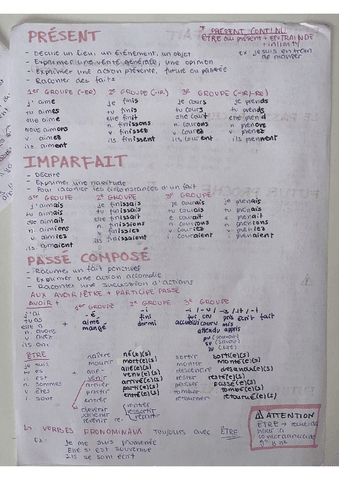 PRÉSENT
PRÉSENT CONTINU
ÊTRE au présent + EN TRAIN DE
+ INFINITIF
ex: je suis en train
de manger
- Décrire un lieu, un événement, un objet
- Exprimer une vérité générale, une opinion
- Exprimer une action présente, future ou passée
- Raconter des faits
1er GROUPE (-ER) 2e GROUPE (-IR) 3e GROUPE (-IR/-RE)
j' aime je finis je cours je prends
tu aimes tu finis tu cours tu prends
elle aime elle finit elle court elle prend
nous aimons n finissons n courons n prenons
v aimez v finissez v courez v prenez
ils aiment ils finissent ils courent ils prennent
IMPARFAIT
- Décrire
- Exprimer une habitude
- Pour raconter les circonstances d'un fait
1er GROUPE 2e GROUPE 3e GROUPE
j'aimais je finissais je courais je prenais
tu aimais tu finissais tu courais tu prenais
elle aimait elle finissait e courait e prenait
n aimions n finissions n courions n prenions
v aimiez v finissiez v couriez v preniez
ils aimaient ils finissaient i couraient i prenaient
PASSÉ COMPOSÉ
- Raconter un fait
- Exprimer une action
- Raconter une succession d'actions
AUX AVOIR/ÊTRE + PARTICIPE PASSÉ
AVOIR 1er GROUPE 2e GROUPE 3e GROUPE
j'ai -é -i
tu as aimé fini
elle a mangé dormi
n avons
v avez
ils ont
ÊTRE naître né(e)(s) sortir sorti(e)(s)
je suis mourir mort(e)(s) monter monté(e)(s)
tu es aller allé(e)(s) descendre descendu(e)(s)
e est venir venu(e)(s) rester resté(e)(s)
n. sommes arriver arrivé(e)(s) passer passé(e)(s)
v êtes partir parti(e)(s) tomber tombé(e)(s)
i sont entrer entré(e)(s) retourner retourné(e)(s)
devenir
revenir
rentrer
VERBES PRONOMINAUX toujours avec ÊTRE
Ex: Je me suis promenée
Elle s'est souvenue
Ils se sont écrit
ATTENTION
ÊTRE →